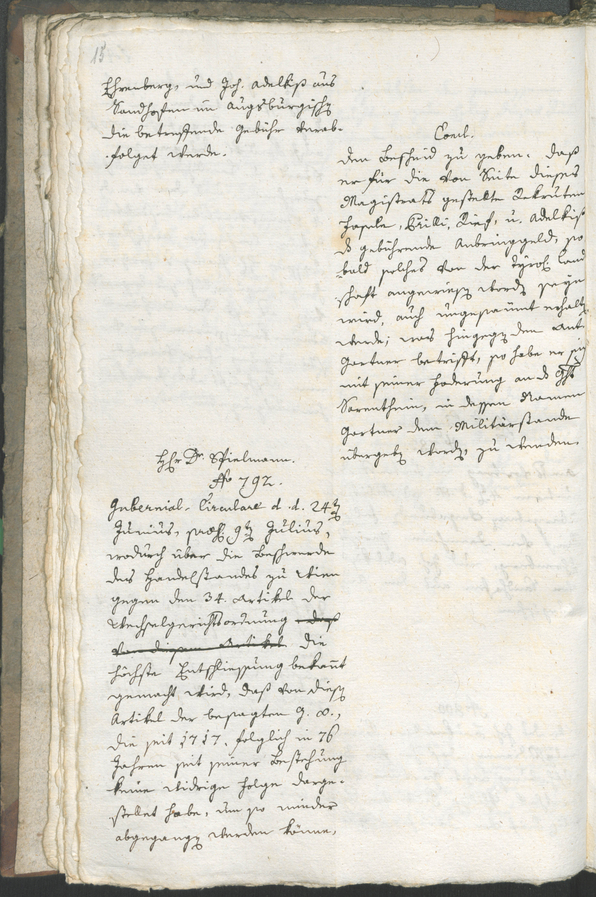 15
Ehrenberg, und Joh. Adelkiß aus
Sandhofen im Augsburgischen
die betreffende Gebühr verab-
folget werde.
Concl.
dem Bescheid zu geben: daß
er für die von Seite dieses
Magistrats gestellte Rekruten
Hosele, Brilli, Rief, u. Adelkiß
gebührende Anbringgeld, so
bald solches von der Tyrol. Land
schaft angewiesen worden seyn
wird, auch ungesäumt erhalten
werde; was hingegen den Ant.
Gartner betrifft, so habe er sich
mit seiner Foderung an das Ght
Sarenthein, in dessen Namen
Gartner dem Militärstande
übergeben worden, zu wenden.
Hhr. Dr. Spielmann.
No 792.
Gubernial-Circulare d. d. 24ten
Junius, praes. 9ten Julius,
wodurch über die Beschwerde
des Handelstandes zu Wien
gegen den 34. Artikel der
Wechselgerichtsordnung daß
von diesem Artikel die
höchste Entschliessung bekannt
gemacht wird, daß von diesem
Artikel der besagten G. O.,
die seit 1717, folglich in 76
Jahren seit seiner Bestehung
keine widrige Folge darge-
stellet habe, um so minder
abgegangen werden könne,